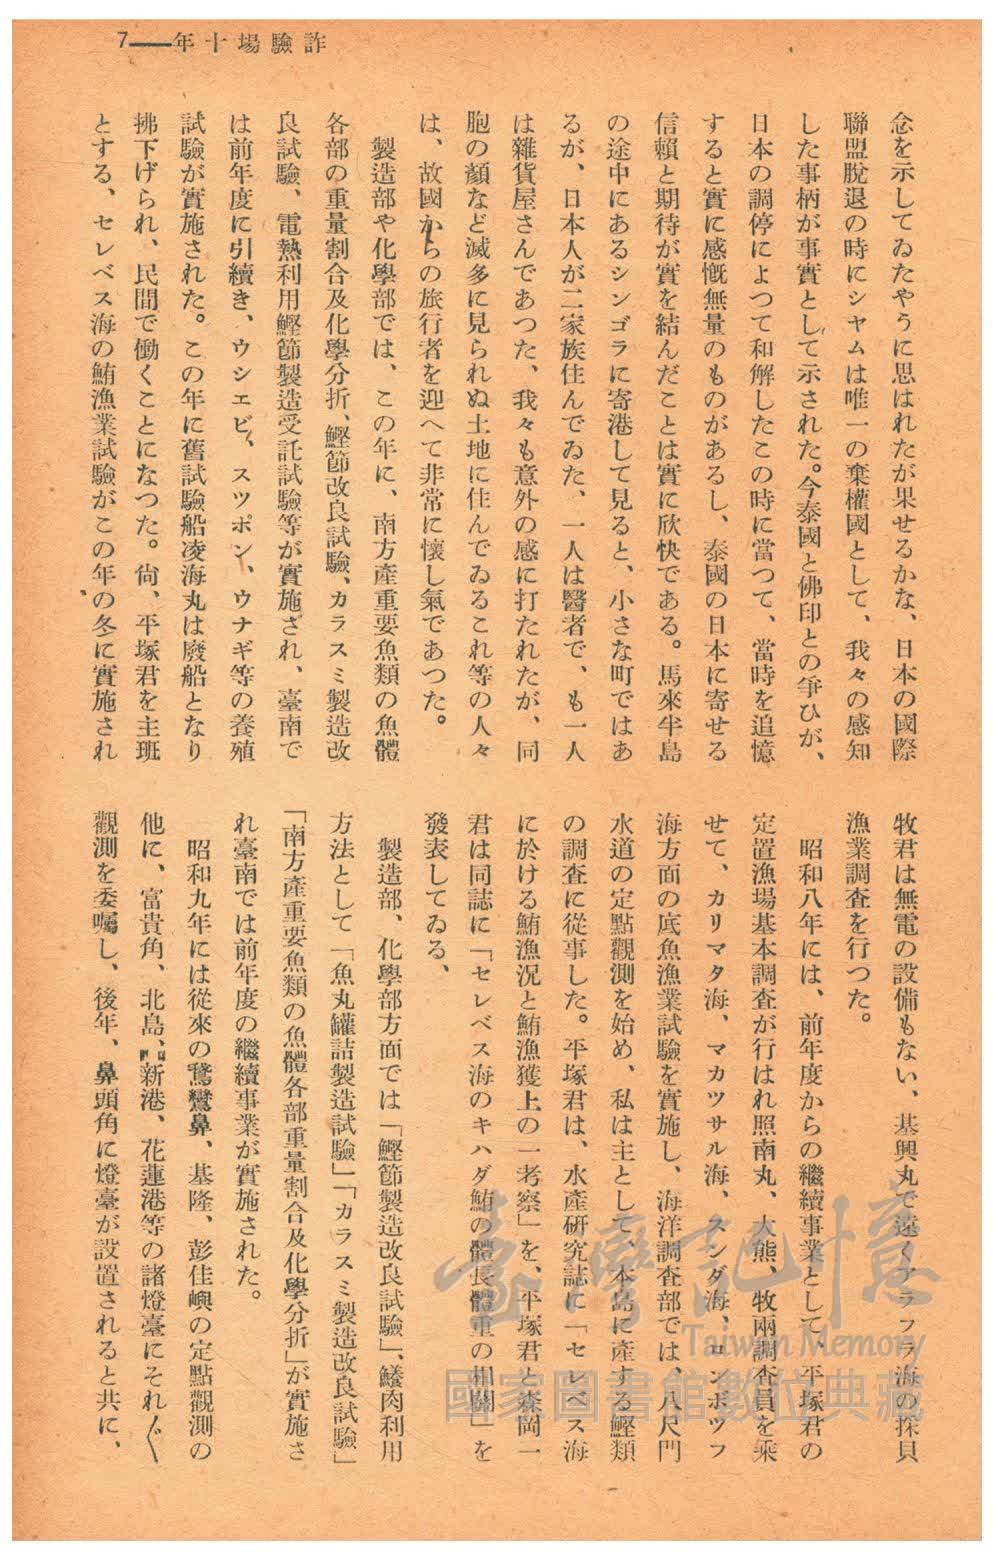 7——年十場驗詐
念を示してゐたやうに思はれたが果せるかな、日本の國際
聯盟脫退の時にシヤムは唯一の棄權國として、我々の感知
した事柄が事實として示された。今泰國と佛印との爭ひが、
日本の調停によつて和解したこの時に當つて、當時を追憶
すると實に感慨無量のものがあるし、泰國の日本に寄せる
信賴と期待が實を結んだことは實に欣快である。馬來半島
の途中にあるシンゴラに寄港して見ると、小さな町ではあ
るが、日本人が二家族住んでゐた、一人は醫者で、も一人
は雜貨屋さんであつた、我々も意外の感に打たれたが、同
胞の顏など滅多に見られぬ土地に住んでゐるこれ等の人々
は、故國からの旅行者を迎へて非常に懷し氣であつた。
製造部や化學部では、この年に、南方產重要魚類の魚體
各部の重量割合及化學分折、鰹節改良試驗、カラスミ製造改
良試驗、電熱利用鰹節製造受託試驗等が實施され、臺南で
は前年度に引續き、ウシエビ、スツポン、ウナギ等の養殖
試驗が實施された。この年に舊試驗船凌海丸は廢船となり
拂下げられ、民間で働くことになつた。尙、平塚君を主班
とする、セレベス海の鮪漁業試驗がこの年の冬に實施され
牧君は無電の設備もない、基興丸で遠くアラフラ海の探貝
漁業調査を行つた。
昭和八年には、前年度からの繼續事業として、平塚君の
定置漁場基本調査が行はれ照南丸、大熊、牧兩調査員を乘
せて、カリマタ海、マカツサル海、スンダ海、ロンボツフ
海方面の底魚漁業試驗を實施し、海洋調査部では、八尺門
水道の定點觀測を始め、私は主として、本島に產する鰹類
の調査に從事した。平塚君は、水產硏究誌に「セレベス海
に於ける鮪漁況と鮪漁獲上の一考察」を、平塚君と森岡一
君は同誌に「セレベス海のキハダ鮪の體長體重の相關」を
發表してゐる、
製造部、化學部方面では「鰹節製造改良試驗」、鱶肉利用
方法として「魚丸罐詰製造試驗」「カラスミ製造改良試驗」
「南方產重要魚類の魚體各部重量割合及化學分折」が實施さ
れ臺南では前年度の繼續事業が實施された。
昭和九年には從來の鵞鑾鼻、基隆、彭佳嶼の定點觀測の
他に、富貴角、北島、新港、花蓮港等の諸燈臺にそれ〲
觀測を委囑し、後年、鼻頭角に燈臺が設置されると共に、
臺灣記憶
Taiwan Memory
國家圖書館數位典藏